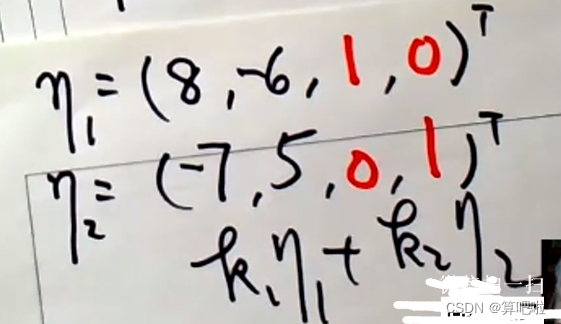 η₁=(8,-6,1,0)ᵀ
η₂=(-7,5,0,1)ᵀ
k₁η₁+k₂η₂
CSDN @算吧啦